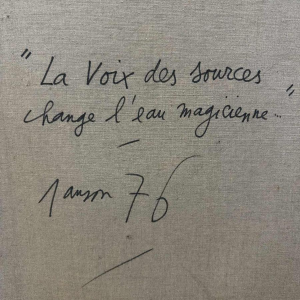 " La Voix des sources
change l'eau magicienne... "
—
Janson 76